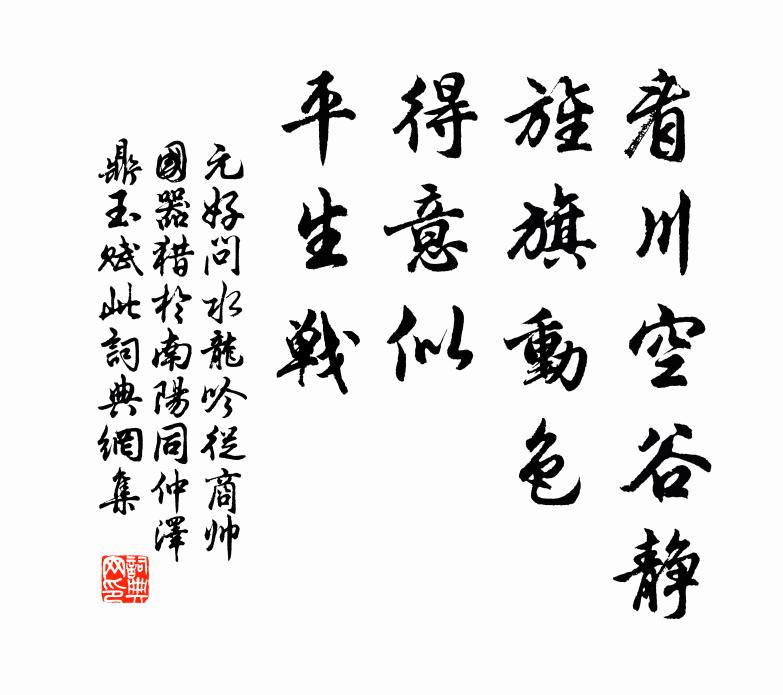 看川空谷静
旌旗動色
得意似
平生戰
元好问水龍吟從商帅
國器猎於南陽同仲澤
鼎玉赋此詞典網集
詞典网印